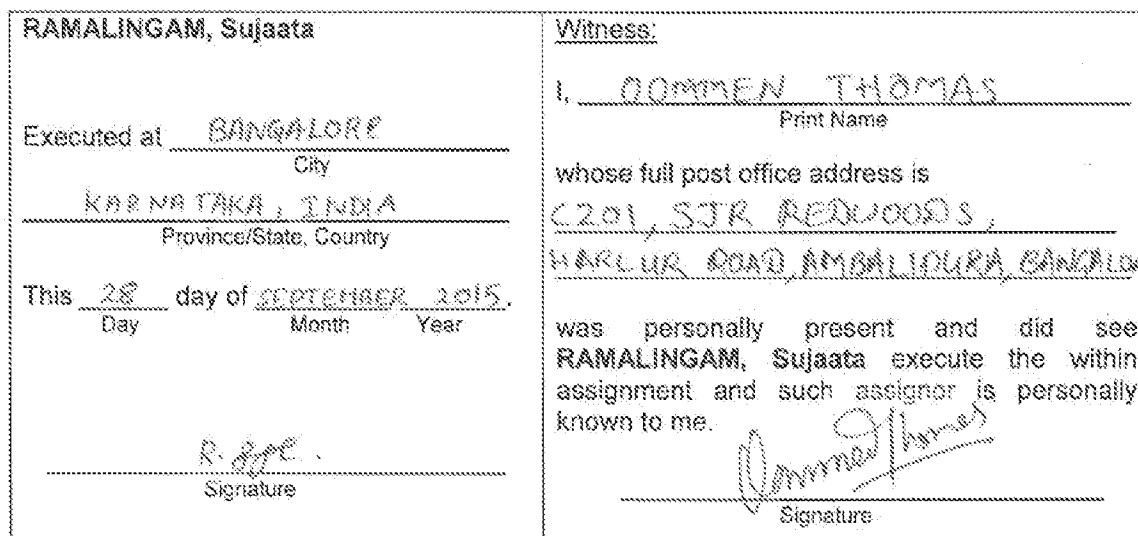 RAMALINGAM, Sujaata
Executed at BANGALORE
City
KARNATAKA, INDIA
Province/State, Country
This 28 day of SEPTEMBER 2015.
Day Month Year
Signature
Witness:
I, OOMMEN THOMAS
Print Name
whose full post office address is
C201, SJR REDWOODS,
HARLUR ROAD, AMBALIPURA, BANGALO
was personally present and did see
RAMALINGAM, Sujaata execute the within
assignment and such assignor is personally
known to me.
Oommen Thomas
Signature